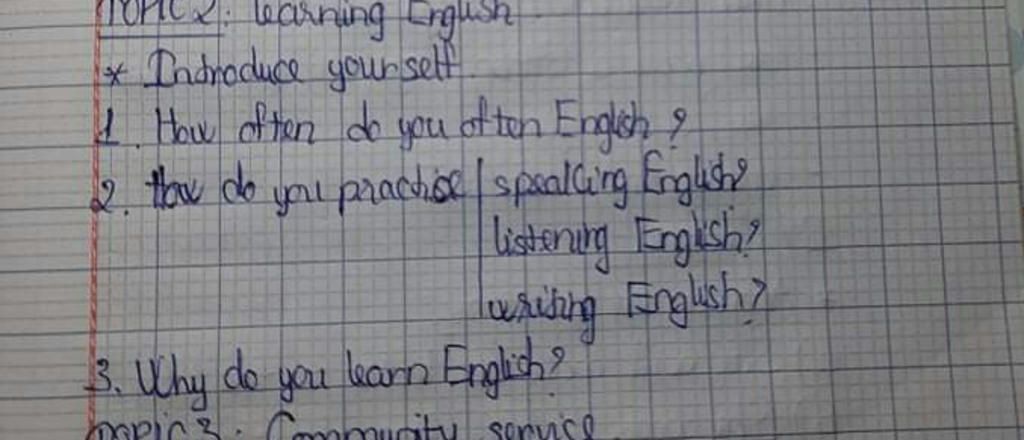 TOPIC 2: learning English
* Introduce yourself
1. How often do you often English?
2. How do you practise speaking English?
listening English?
writing English?
3. Why do you learn English?
Topic 3: Community service